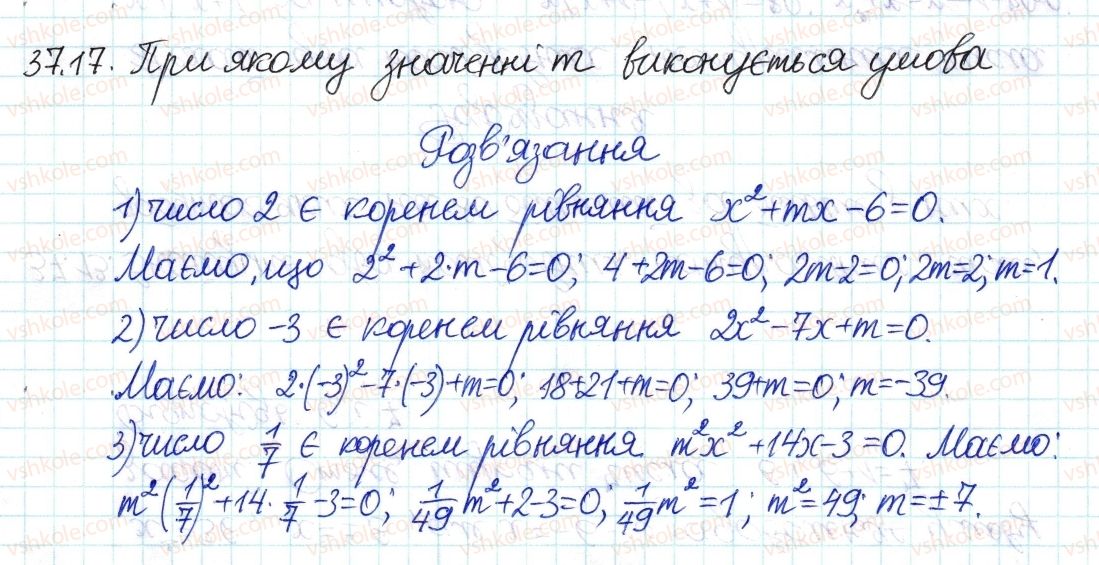 37.17. При якому значенні m виконується умова
Розв'язання
1) число 2 є коренем рівняння x²+mx-6=0.
Маємо, що 2²+2·m-6=0; 4+2m-6=0; 2m-2=0; 2m=2; m=1.
2) число -3 є коренем рівняння 2x²-7x+m=0.
Маємо: 2·(-3)²-7·(-3)+m=0; 18+21+m=0; 39+m=0; m=-39.
3) число 1/7 є коренем рівняння m²x²+14x-3=0. Маємо:
m²(1/7)²+14·1/7-3=0; 1/49m²+2-3=0; 1/49m²=1; m²=49; m=±7.